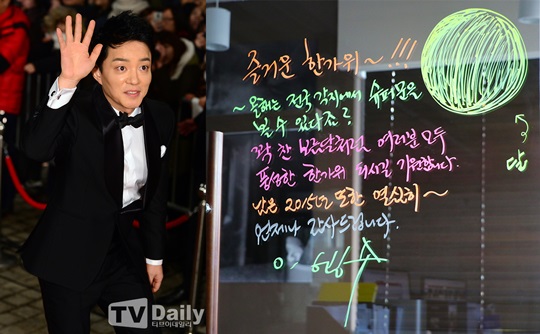 즐거운 한가위~!!!
~ 올해는 전국 각지에서 슈퍼문을
볼 수 있다죠?
꽉 찬 보름달처럼 여러분 모두
풍성한 한가위 되시길 기원합니다.
남은 2015년 또한 열심히~
언제나 감사드립니다.
달
TV Daily
티브이데일리